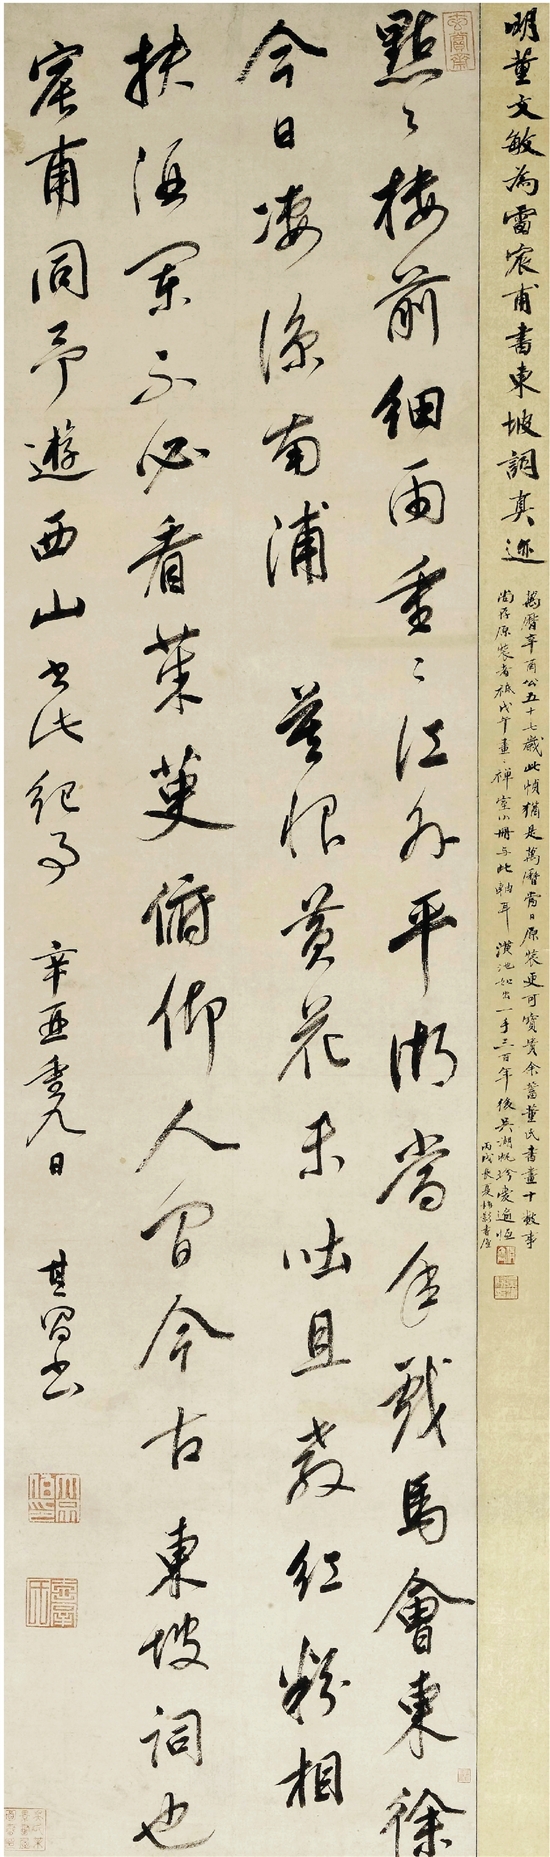 明董文敏為雷宸甫書東坡詞真迹
萬曆辛亥公五十七歲此幀猶是萬曆當日原裝更可寶貴余蓄董氏書畫十數事
尚存原裝者祗戊午畫〻禪室小冊與此軸耳 潢池如出一手三百年後吳湖帆珍愛逾恆
丙戌長夏梅影書屋
玄賞齋
點〻樓前細雨重〻江外平湖當年戲馬會東徐
今日淒涼南浦 莫恨黃花未吐且教紅粉相
扶酒闌不必看茱萸俯仰人間今古東坡詞也
宸甫同予遊西山書此紀事 辛亥重九日 其昌書